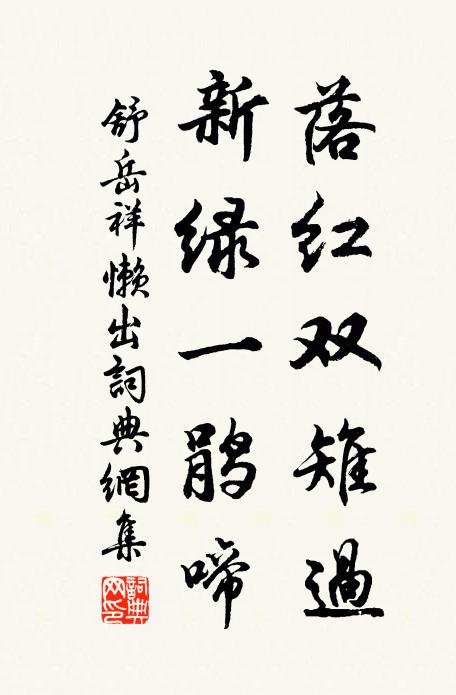 落红双雉過
新绿一鹃啼
舒岳祥懒出詞典網集
詞典網印